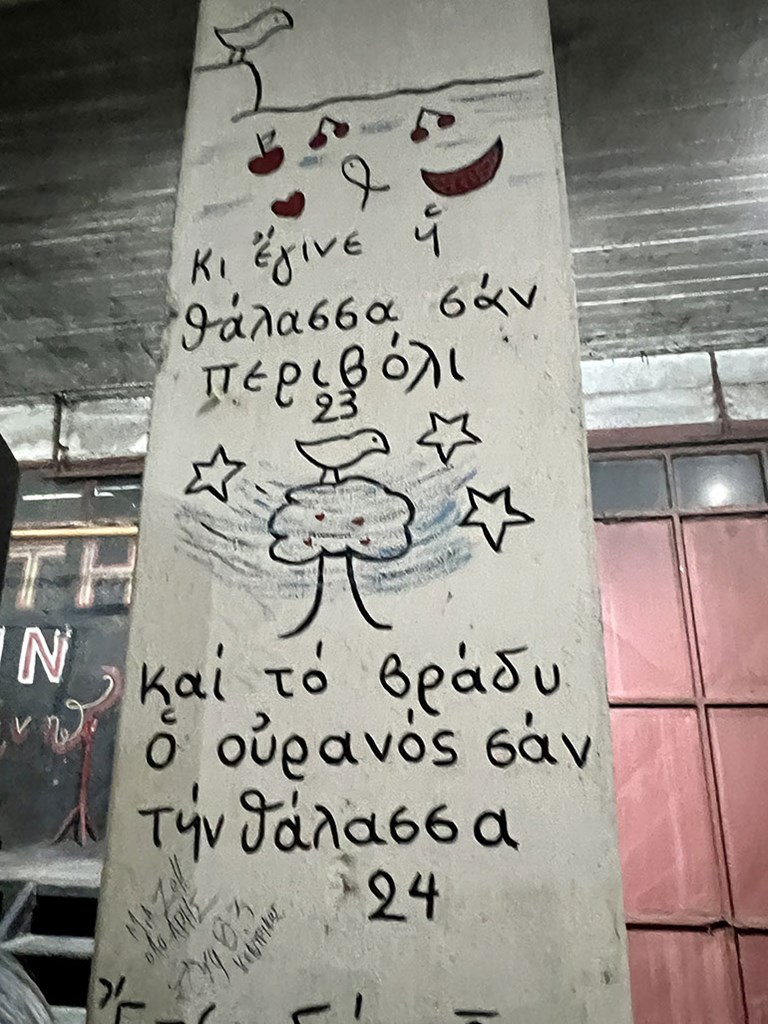 Κι ἔγινε ἡ
θάλασσα σάν
περιβόλι
23
καί τό βράδυ
ὁ οὐρανός σάν
τήν θάλασσα
24
ΤΗ
ΙΝ